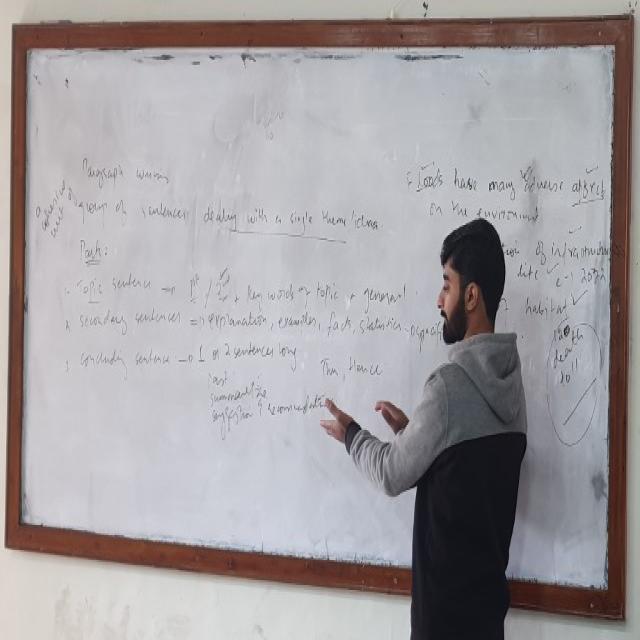 Paragraph writing
group of sentences dealing with a single theme/idea
Parts:
1. Topic sentence → 1st / 2nd + key words of topic + general
2. secondary sentences = explanation, examples, facts, statistics
3. concluding sentence → 1 or 2 sentences long
last
summarize
suggestion / recommendation
Thus, Hence
Floods have many adverse affects
on the environment
of infrastructure
life
habitat